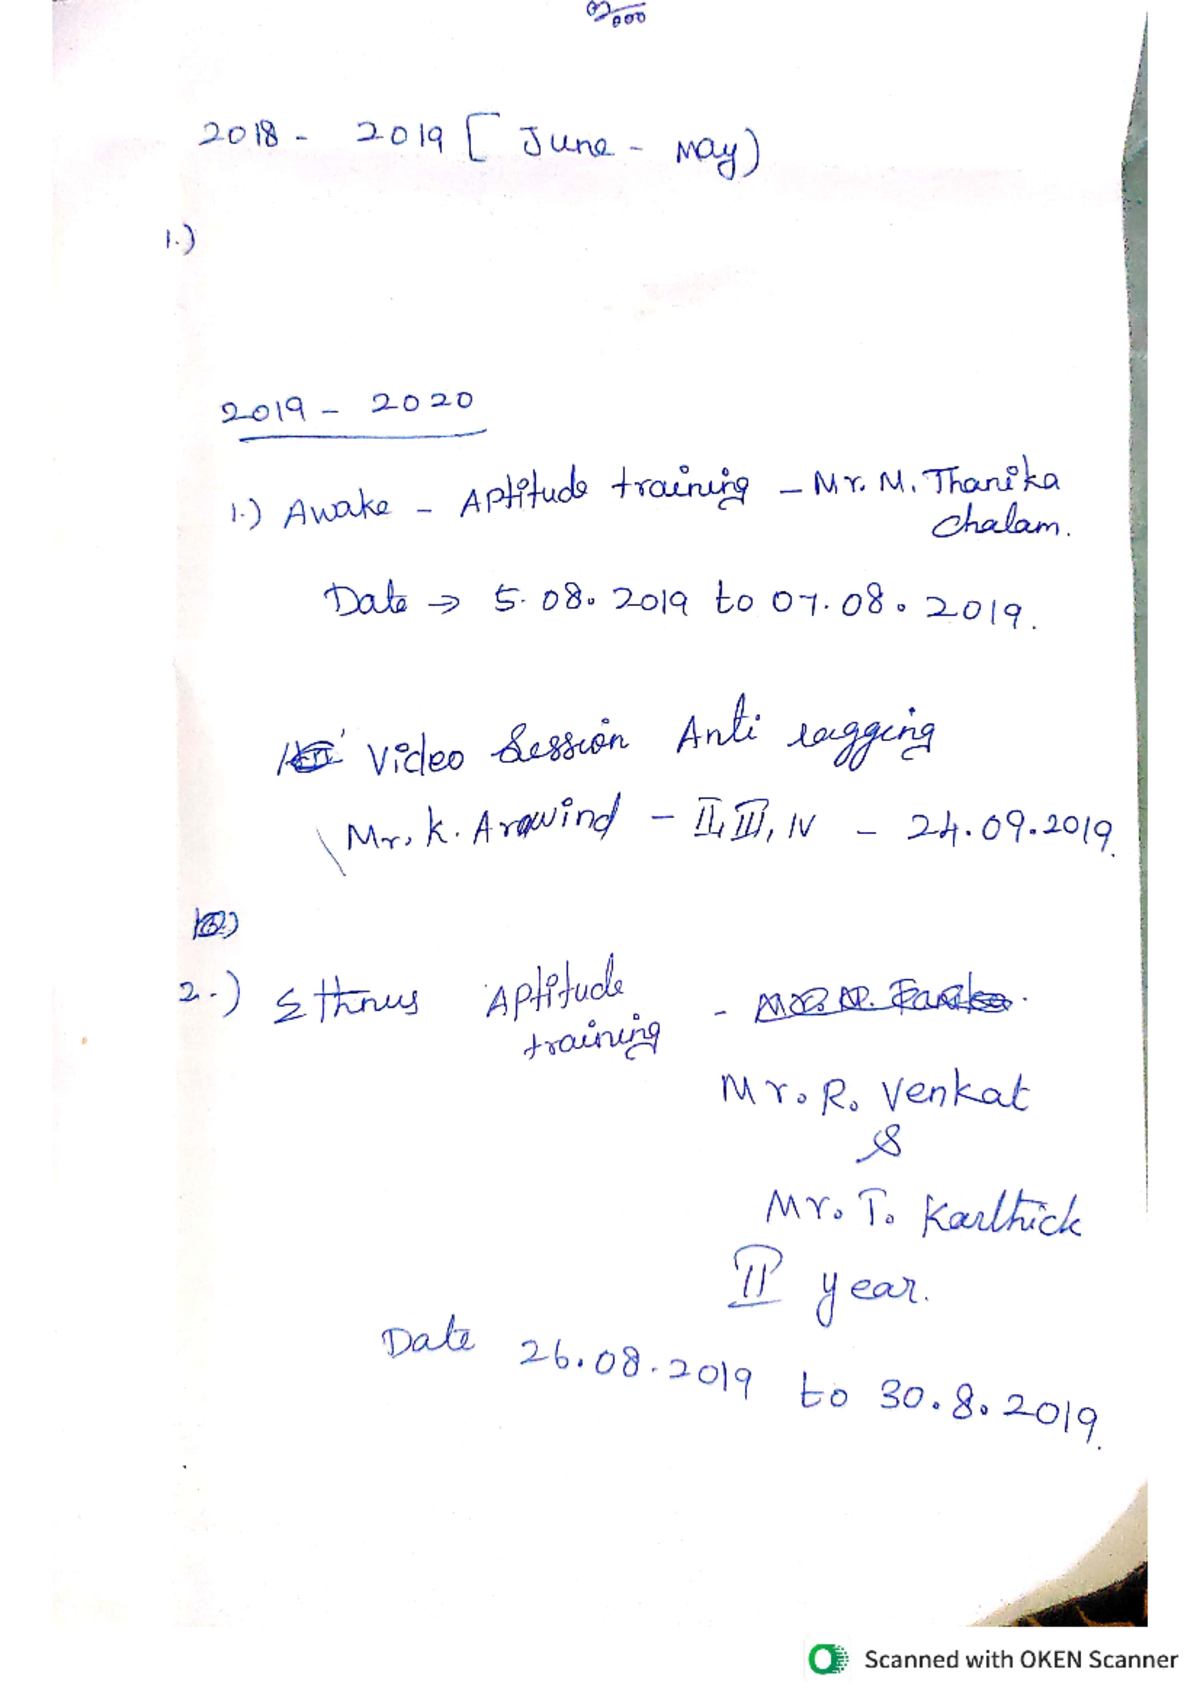 2018 - 2019 [ June - May)
1.)
2019 - 2020
1.) Awake - Aptitude training - Mr. M. Thanika
chalam.
Date → 5.08.2019 to 07.08.2019.
Video Session Anti ragging
Mr. K. Aravind - II, III, IV - 24.09.2019.
2.) Ethnus Aptitude
training -
Mr. R. Venkat
&
Mr. T. Karthick
II year.
Date 26.08.2019 to 30.8.2019.
Scanned with OKEN Scanner